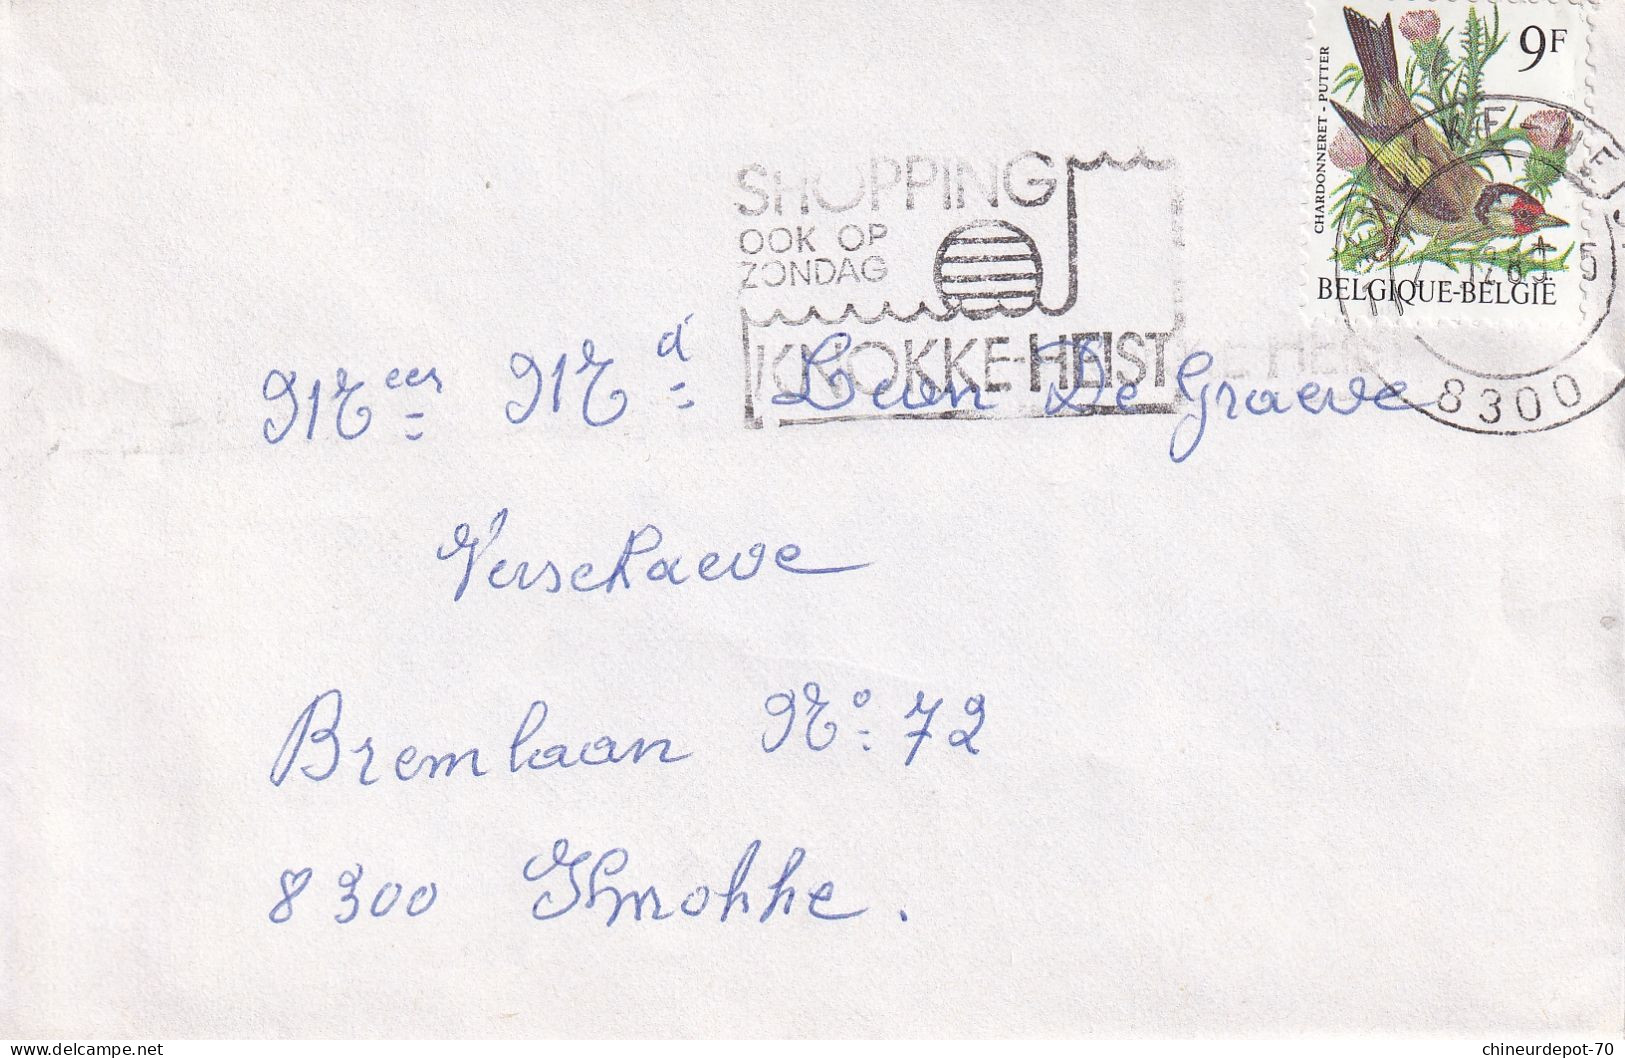 9F
CHARDONNERET - PUTTER
BELGIQUE-BELGIË
SHOPPING
OOK OP
ZONDAG
KNOKKE-HEIST
8300
Mr Leon De Graeve
Verschaeve
Bremlaan No 72
8300 Knokke.
chineurdepot-70
www.delcampe.net